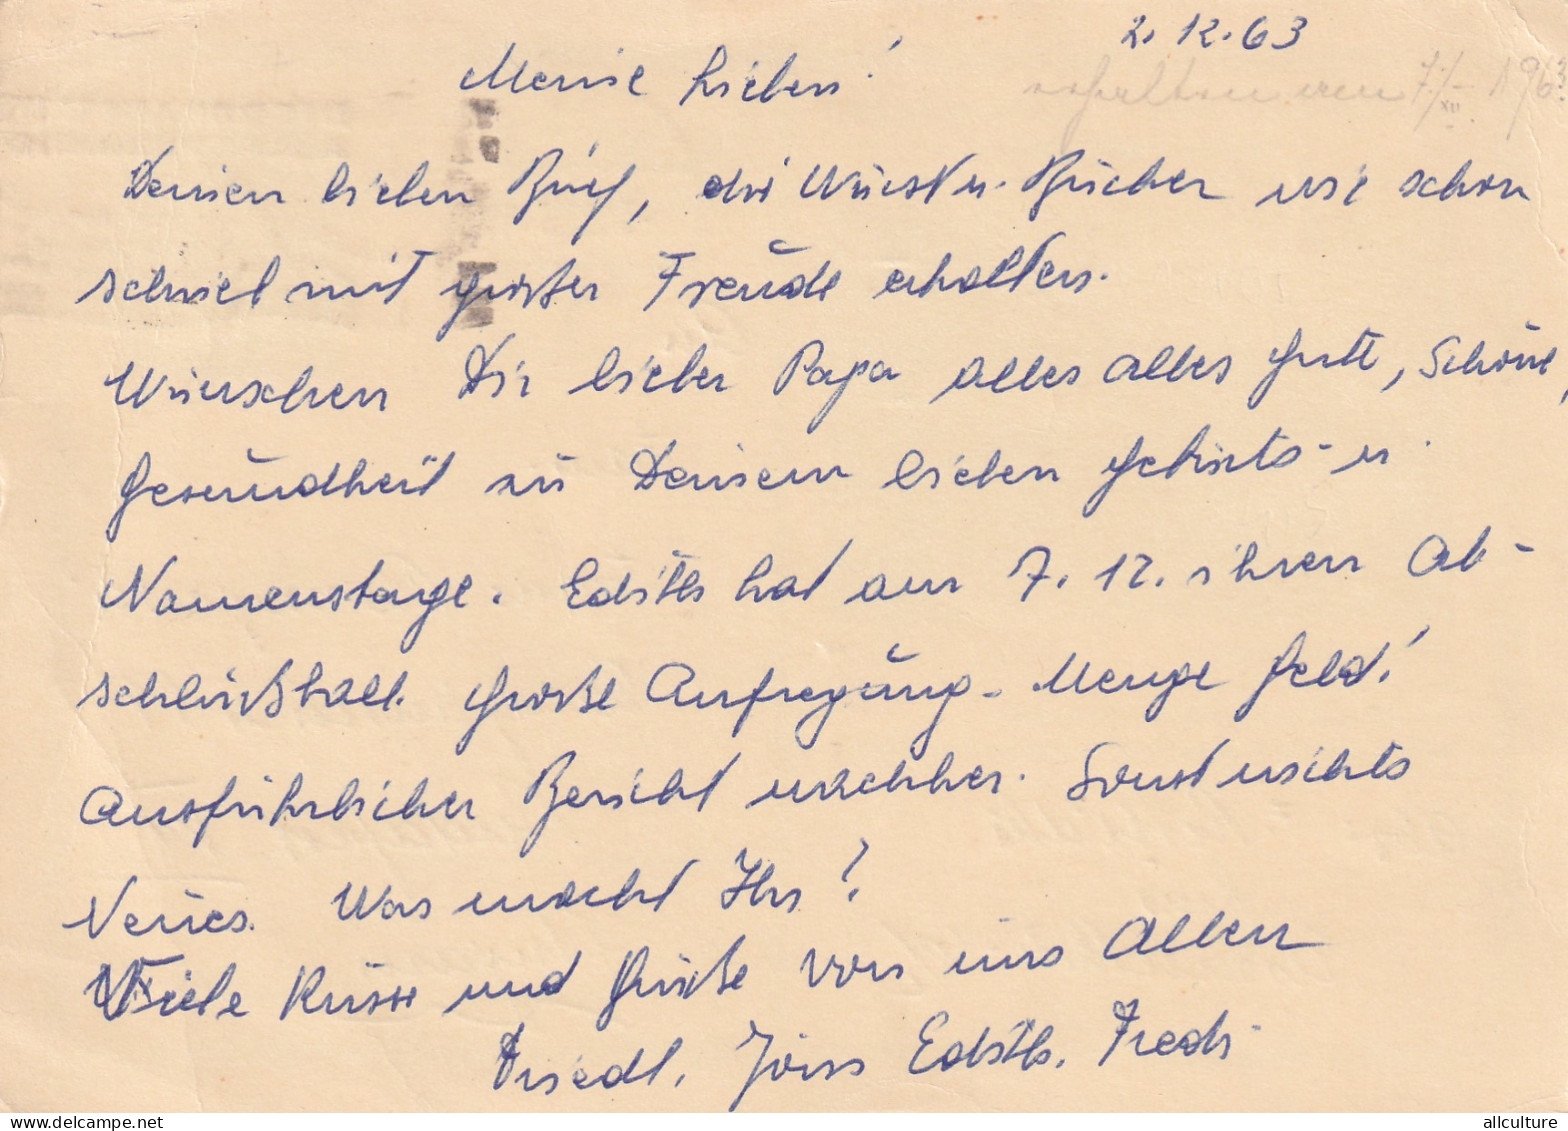 2. 12. 63
Meine Lieben!
erhalten am 7/XII 1963
Deinen lieben Brief, die Würst u. Bücher wie schon
schnell mit großer Freude erhalten.
Wünschen Dir lieber Papa alles alles Gute, Schöne,
Gesundheit zu Deinem lieben Geburts- u.
Namenstage. Edith hat am 7. 12. ihren Ab-
schlußball. Große Aufregung - Menge Geld!
Ausführlicher Bericht nachher. Sonst nichts
Neues. Was macht Ihr?
Viele Küsse und Grüße von uns Allen
Friedl, Edith, Fredi
allculture